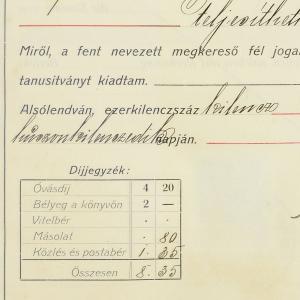 teljesíthető
Miről, a fent nevezett megkereső fél joga
tanusítványt kiadtam.
Alsólendván, ezerkilenczszáz kilencz
huszonkilenczedik napján.
Díjjegyzék:
Óvásdíj 4 20
Bélyeg a könyvön 2 —
Vitelbér . .
Másolat . 80
Közlés és postabér 1. 35
Összesen 8. 35